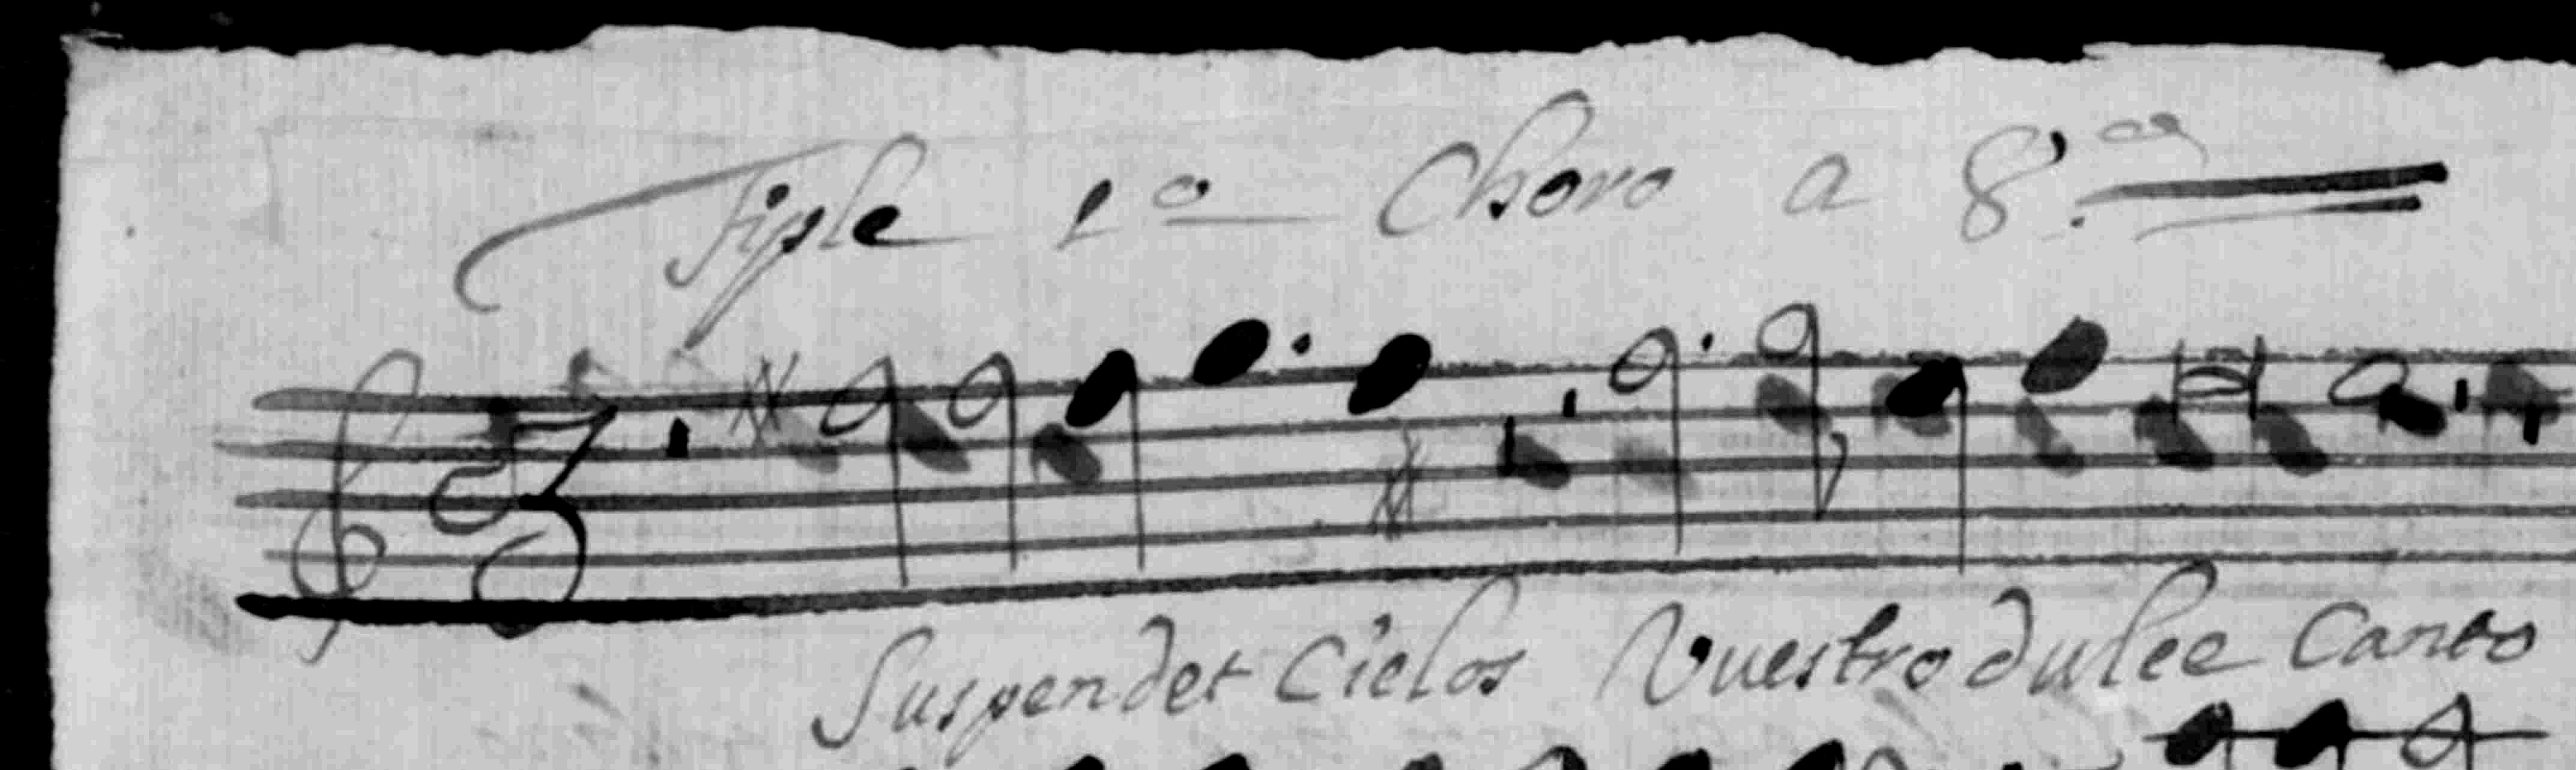 Tiple 1º Choro a 8.
Suspendet Cielos Vuestro dulce Canto